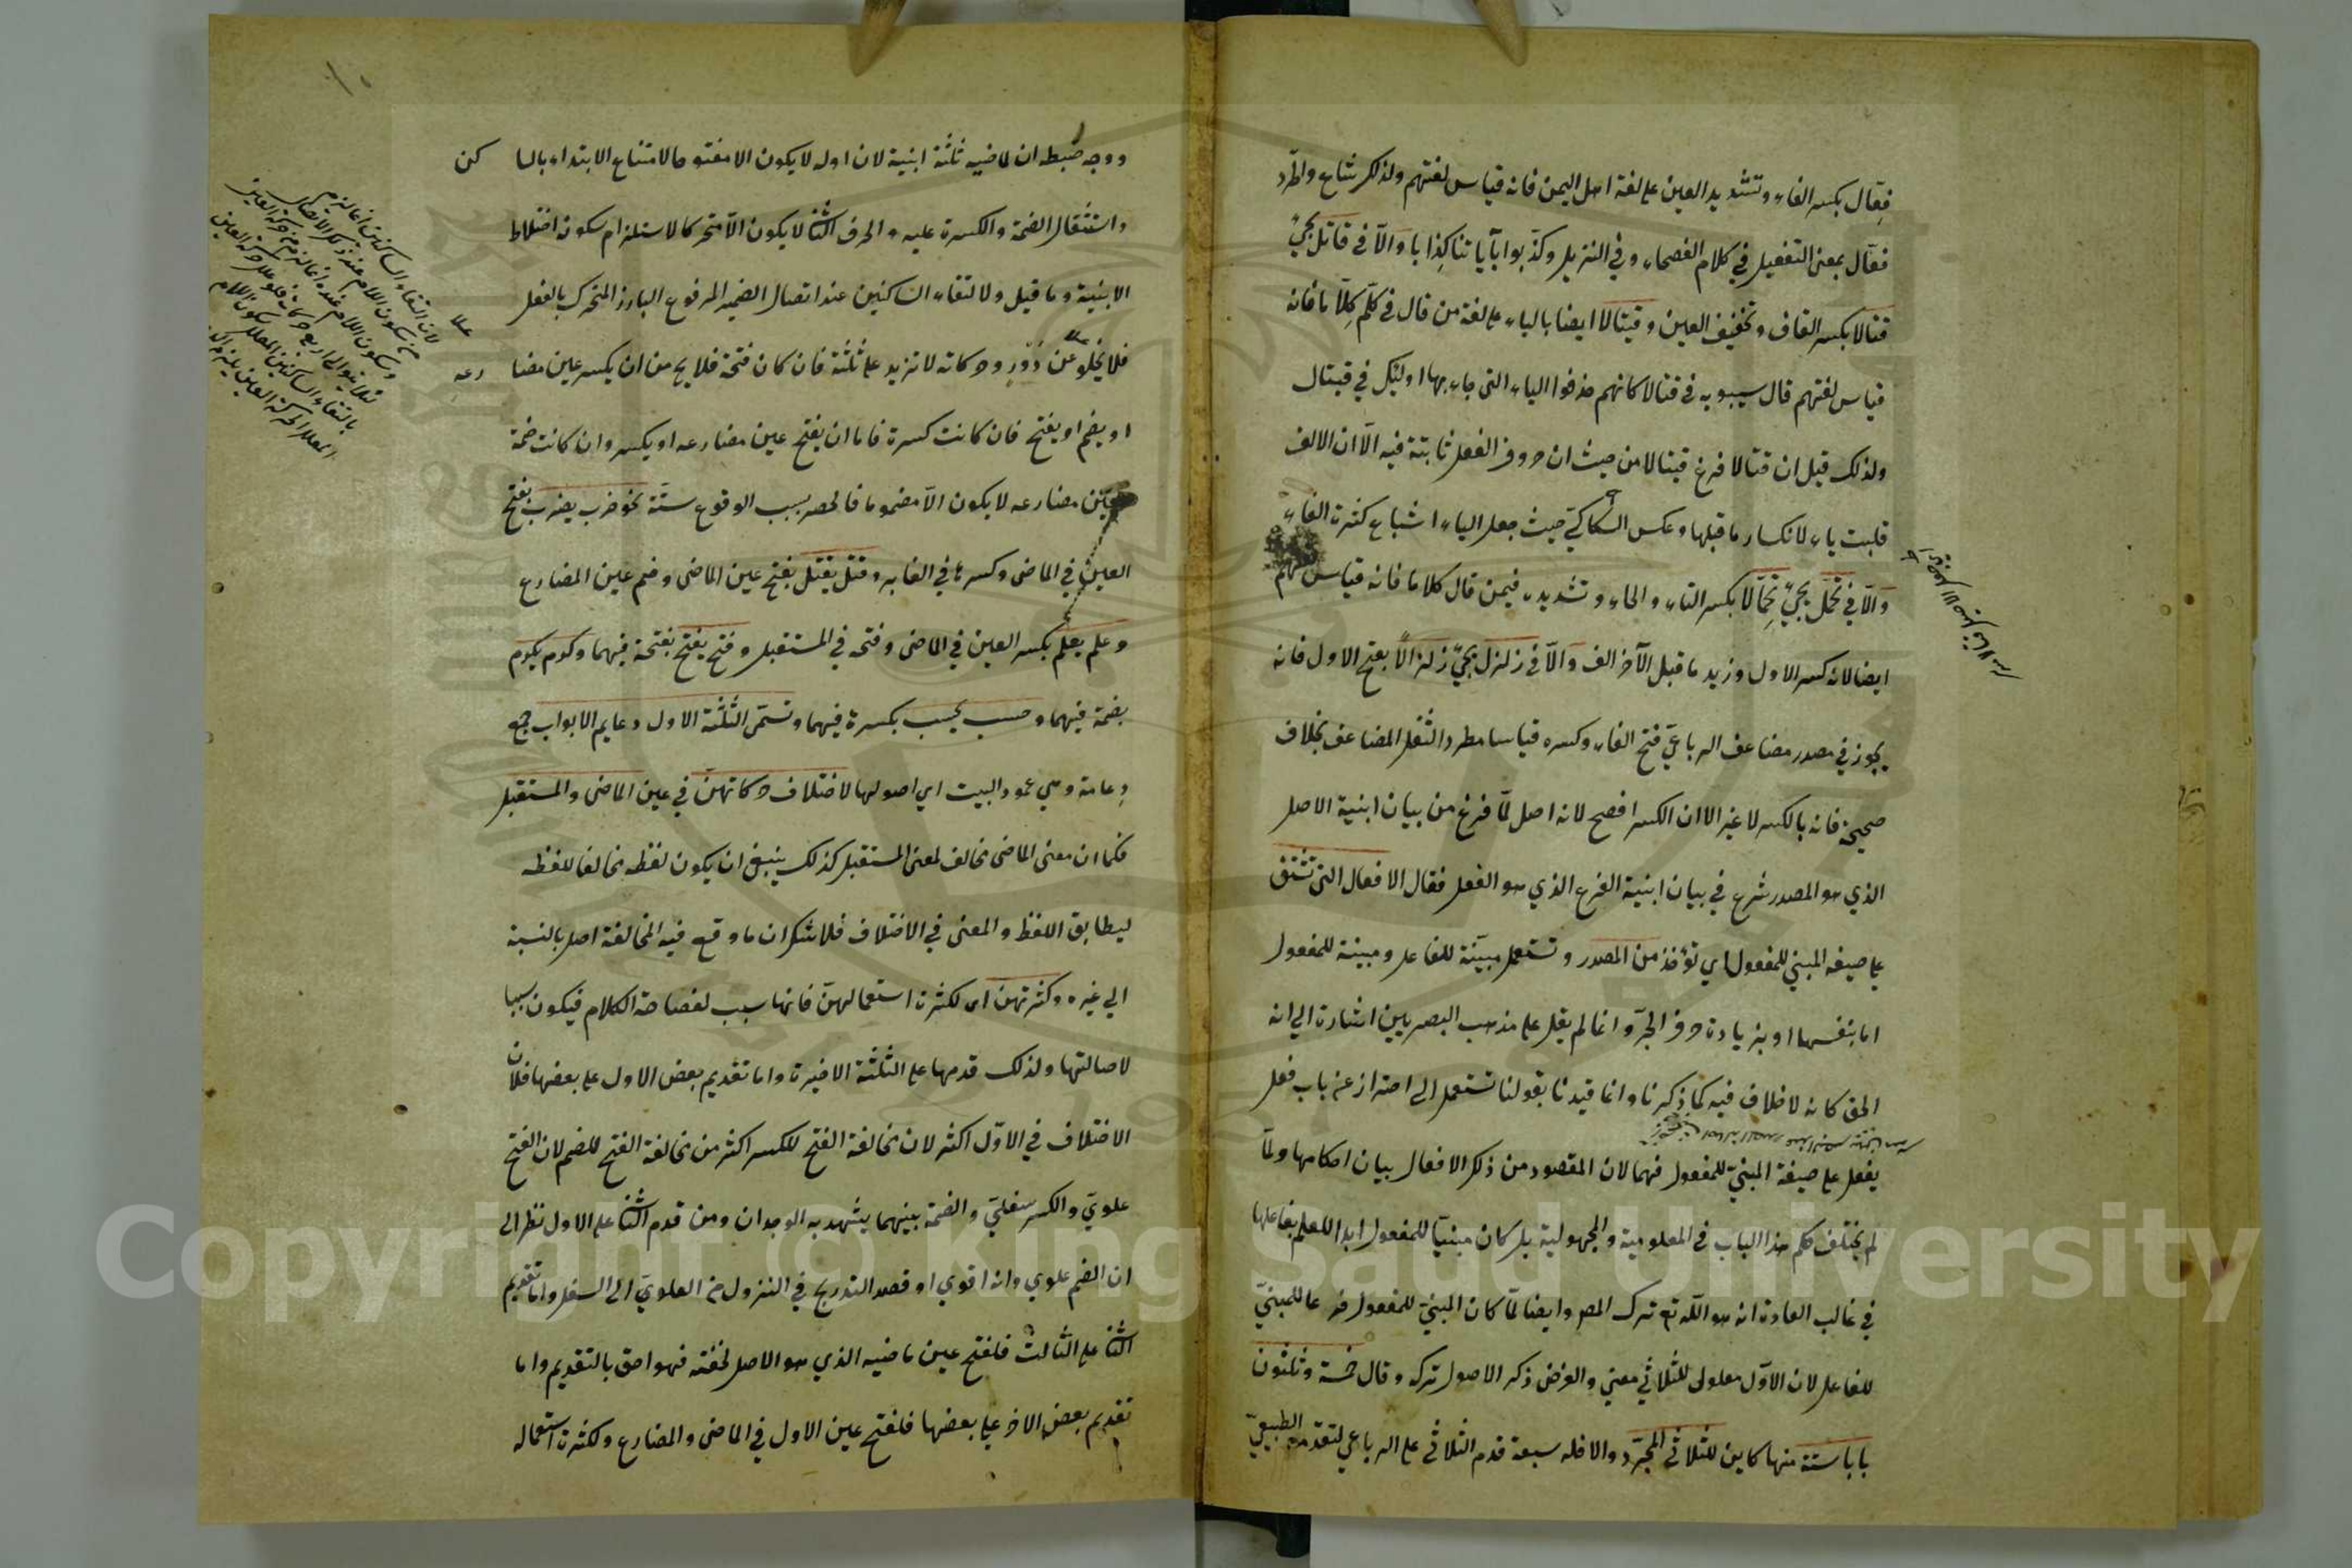 فِعّال بكسر الفاء وتشديد العين على لغة اهل اليمن فانه قياس لغتهم ولذلك شاع واطّرد
فعّال بمعنى التفعيل في كلام الفصحاء وفي التنزيل وكذّبوا بآياتنا كِذّابا والّا في قاتل يجيُ
قتالا بكسر القاف وتخفيف العين وقيتالا ايضا بالياء على لغة من قال في كلّم كِلّاما فانه
قياس لغتهم قال سيبويه في قتالا كانهم حذفوا الياء التي جاء بها اولئك في قيتال
ولذلك قيل ان قتالا فرع قيتالا من حيث ان حروف الفعل ثابتة فيه الّا ان الالف
قلبت ياء لانكسار ما قبلها وعكس السكاكيّ حيث جعل الياء اشباع كسرة الفاء
والّا في تحمّل يجيُ تِحِمّالا بكسر التاء والحاء وتشديد فيمن قال كلاما فانه قياس لغتهم
ايضا لانه كسر الاول وزيد ما قبل الآخر الف والّا في زلزل يجيُ زَلزالًا بفتح الاول فانه
يجوز في مصدر مضاعف الرباعيّ فتح الفاء وكسره قياسا مطردا لثقل المضاعف بخلاف
صحيحه فانه بالكسر لا غير الا ان الكسر افصح لانه اصل لمّا فرغ من بيان ابنية الاصل
الذي هو المصدر شرع في بيان ابنية الفرع الذي هو الفعل فقال الافعال التي تشتق
على صيغه المبني للمفعول اي تؤخذ من المصدر وتستعمل مبيّنة للفاعل ومبينة للمفعول
اما بنفسها او بزيادة حرف الجرّ وانما لم يقل على مذهب البصريين اشارة الى انه
الحق كانه لا خلاف فيه كما ذكرنا وانما قيدنا بقولنا تستعمل الى احتراز عن باب فعل
يفعل على صيغة المبنيّ للمفعول فيهما لان المقصود من ذكر الافعال بيان احكامها ولمّا
لم يختلف حكم هذا الباب في المعلومية والمجهولية بل كان مبنيّا للمفعول ابدا للعلم بفاعلها
في غالب العادة انه هو الله تع ترك المص وايضا لمّا كان المبنيّ للمفعول فرعا للمبنيّ
للفاعل لان الاوّل معلول للثلاثي معنى والغرض ذكر الاصول تركه وقال خمسة وثلثون
بابا ستة منها كاين للثلاثي المجرّد والا فله سبعة قدم الثلاثي على الرباعي لتقدمه الطبيعيّ
ووجه ضبطه ان لماضيه ثلثة ابنية لان اوله لا يكون الا مفتوحا لامتناع الابتداء بالسا كن
واستثقال الضمة والكسرة عليه والحرف الثا لا يكون الّا متحركا لاستلزام سكونه اختلاط
الابنية وما قيل ولالتقاء الساكنين عند اتصال الضمير المرفوع البارز المتحرك بالفعل
فلا يخلو عن دَوْر وحركاته لا تزيد على ثلثة فان كان فتحة فلا يخ من ان يكسر عين مضا رعه
او يضم او يفتح فان كانت كسرة فاما ان يفتح عين مضارعه او يكسر وان كانت ضمة
فعين مضارعه لا يكون الّا مضموما فانحصر بسبب الوقوع ستّة نحو ضرب يضرب بفتح
العين في الماضى وكسرها في الغابر وقتل يقتل بفتح عين الماضى وضم عين المضارع
وعلم يعلم بكسر العين في الماضى وفتحه في المستقبل وفتح يفتح بفتحة فيهما وكرم يكرم
بضمة فيهما وحسب يحسب بكسرة فيهما وتسمّى الثلثة الاول دعايم الابواب جمع
دِعامة وهي عمود البيت اي اصولها لاختلاف حركاتهنّ في عين الماضى والمستقبل
فكما ان معنى الماضى مخالف لمعنى المستقبل كذلك ينبغي ان يكون لفظه مخالفا للفظه
ليطابق اللفظ والمعنى في الاختلاف فلا شك ان ما وقع فيه المخالفة اصل بالنسبة
الى غيره وكثرتهن اى لكثرة استعمالهنّ فانها سبب لفصاحة الكلام فيكون سببا
لاصالتها ولذلك قدمها على الثلثة الاخيرة واما تقديم بعض الاول على بعضها فلان
الاختلاف في الاوّل اكثر لان مخالفة الفتح للكسر اكثر من مخالفة الفتح للضم لان الفتح
علويّ والكسر سفليّ والضمة بينهما يشهد به الوجدان ومن قدم الثا على الاول نظر الى
ان الضم علوي وانه اقوي او قصد التدريج في النزول من العلويّ الى السفل واما تقديم
الثا على الثالث فلفتح عين ماضيه الذي هو الاصل لخفته فهو احق بالتقديم واما
تقديم بعض الاخر على بعضها فلفتح عين الاول في الماضى والمضارع ولكثرة استعماله
١٠
Copyright © King Saud University